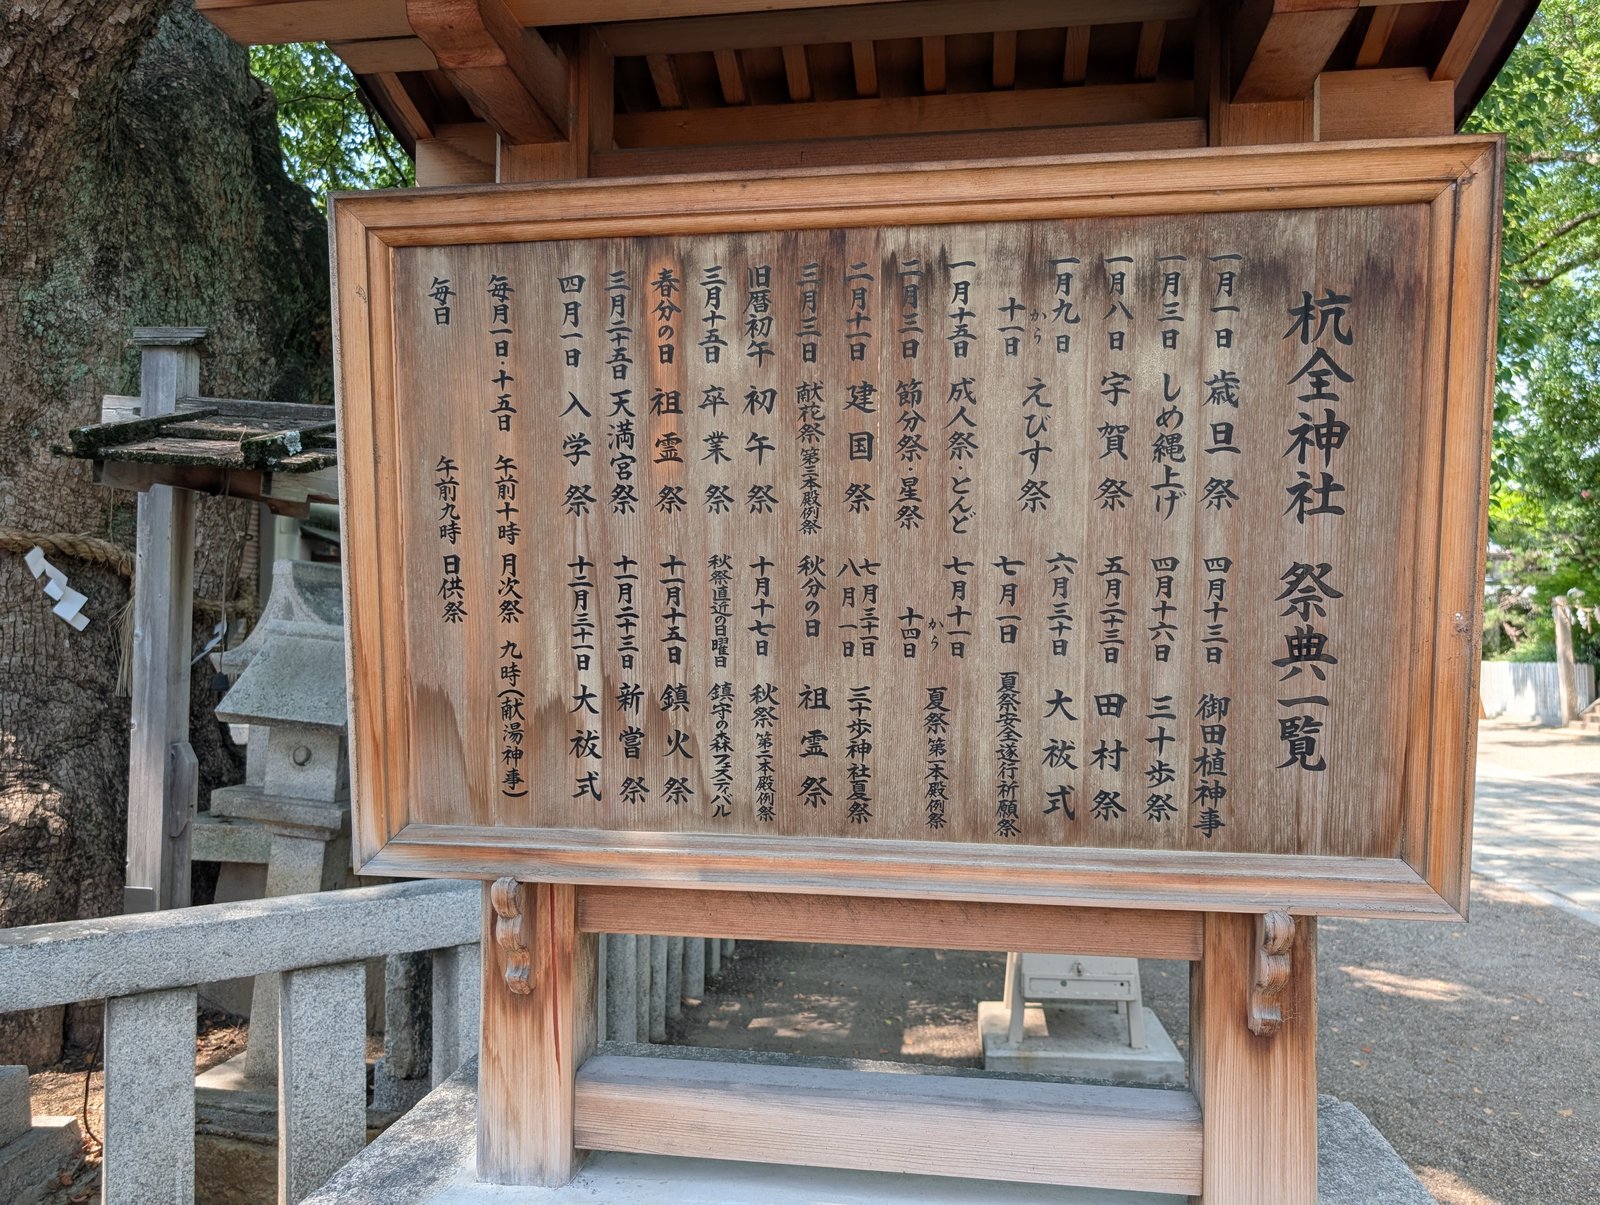 杭全神社 祭典一覧
一月一日 歳旦祭
一月三日 しめ縄上げ
一月八日 宇賀祭
一月九日から十一日 えびす祭
一月十五日 成人祭・とんど
二月三日 節分祭・星祭
二月十一日 建国祭
三月三日 献花祭 第三本殿例祭
旧暦初午 初午祭
三月十五日 卒業祭
春分の日 祖霊祭
三月二十五日 天満宮祭
四月一日 入学祭
四月十三日 御田植神事
四月十六日 三十歩祭
五月二十三日 田村祭
六月三十日 大祓式
七月一日 夏祭安全遂行祈願祭
七月十一日から十四日 夏祭 第一本殿例祭
七月三十一日
八月一日 三十歩神社夏祭
秋分の日 祖霊祭
十月十七日 秋祭 第二本殿例祭
秋祭直近の日曜日 鎮守の森フェスティバル
十一月十五日 鎮火祭
十一月二十三日 新嘗祭
十二月三十一日 大祓式
毎月一日・十五日 午前十時 月次祭 九時(献湯神事)
毎日 午前九時 日供祭